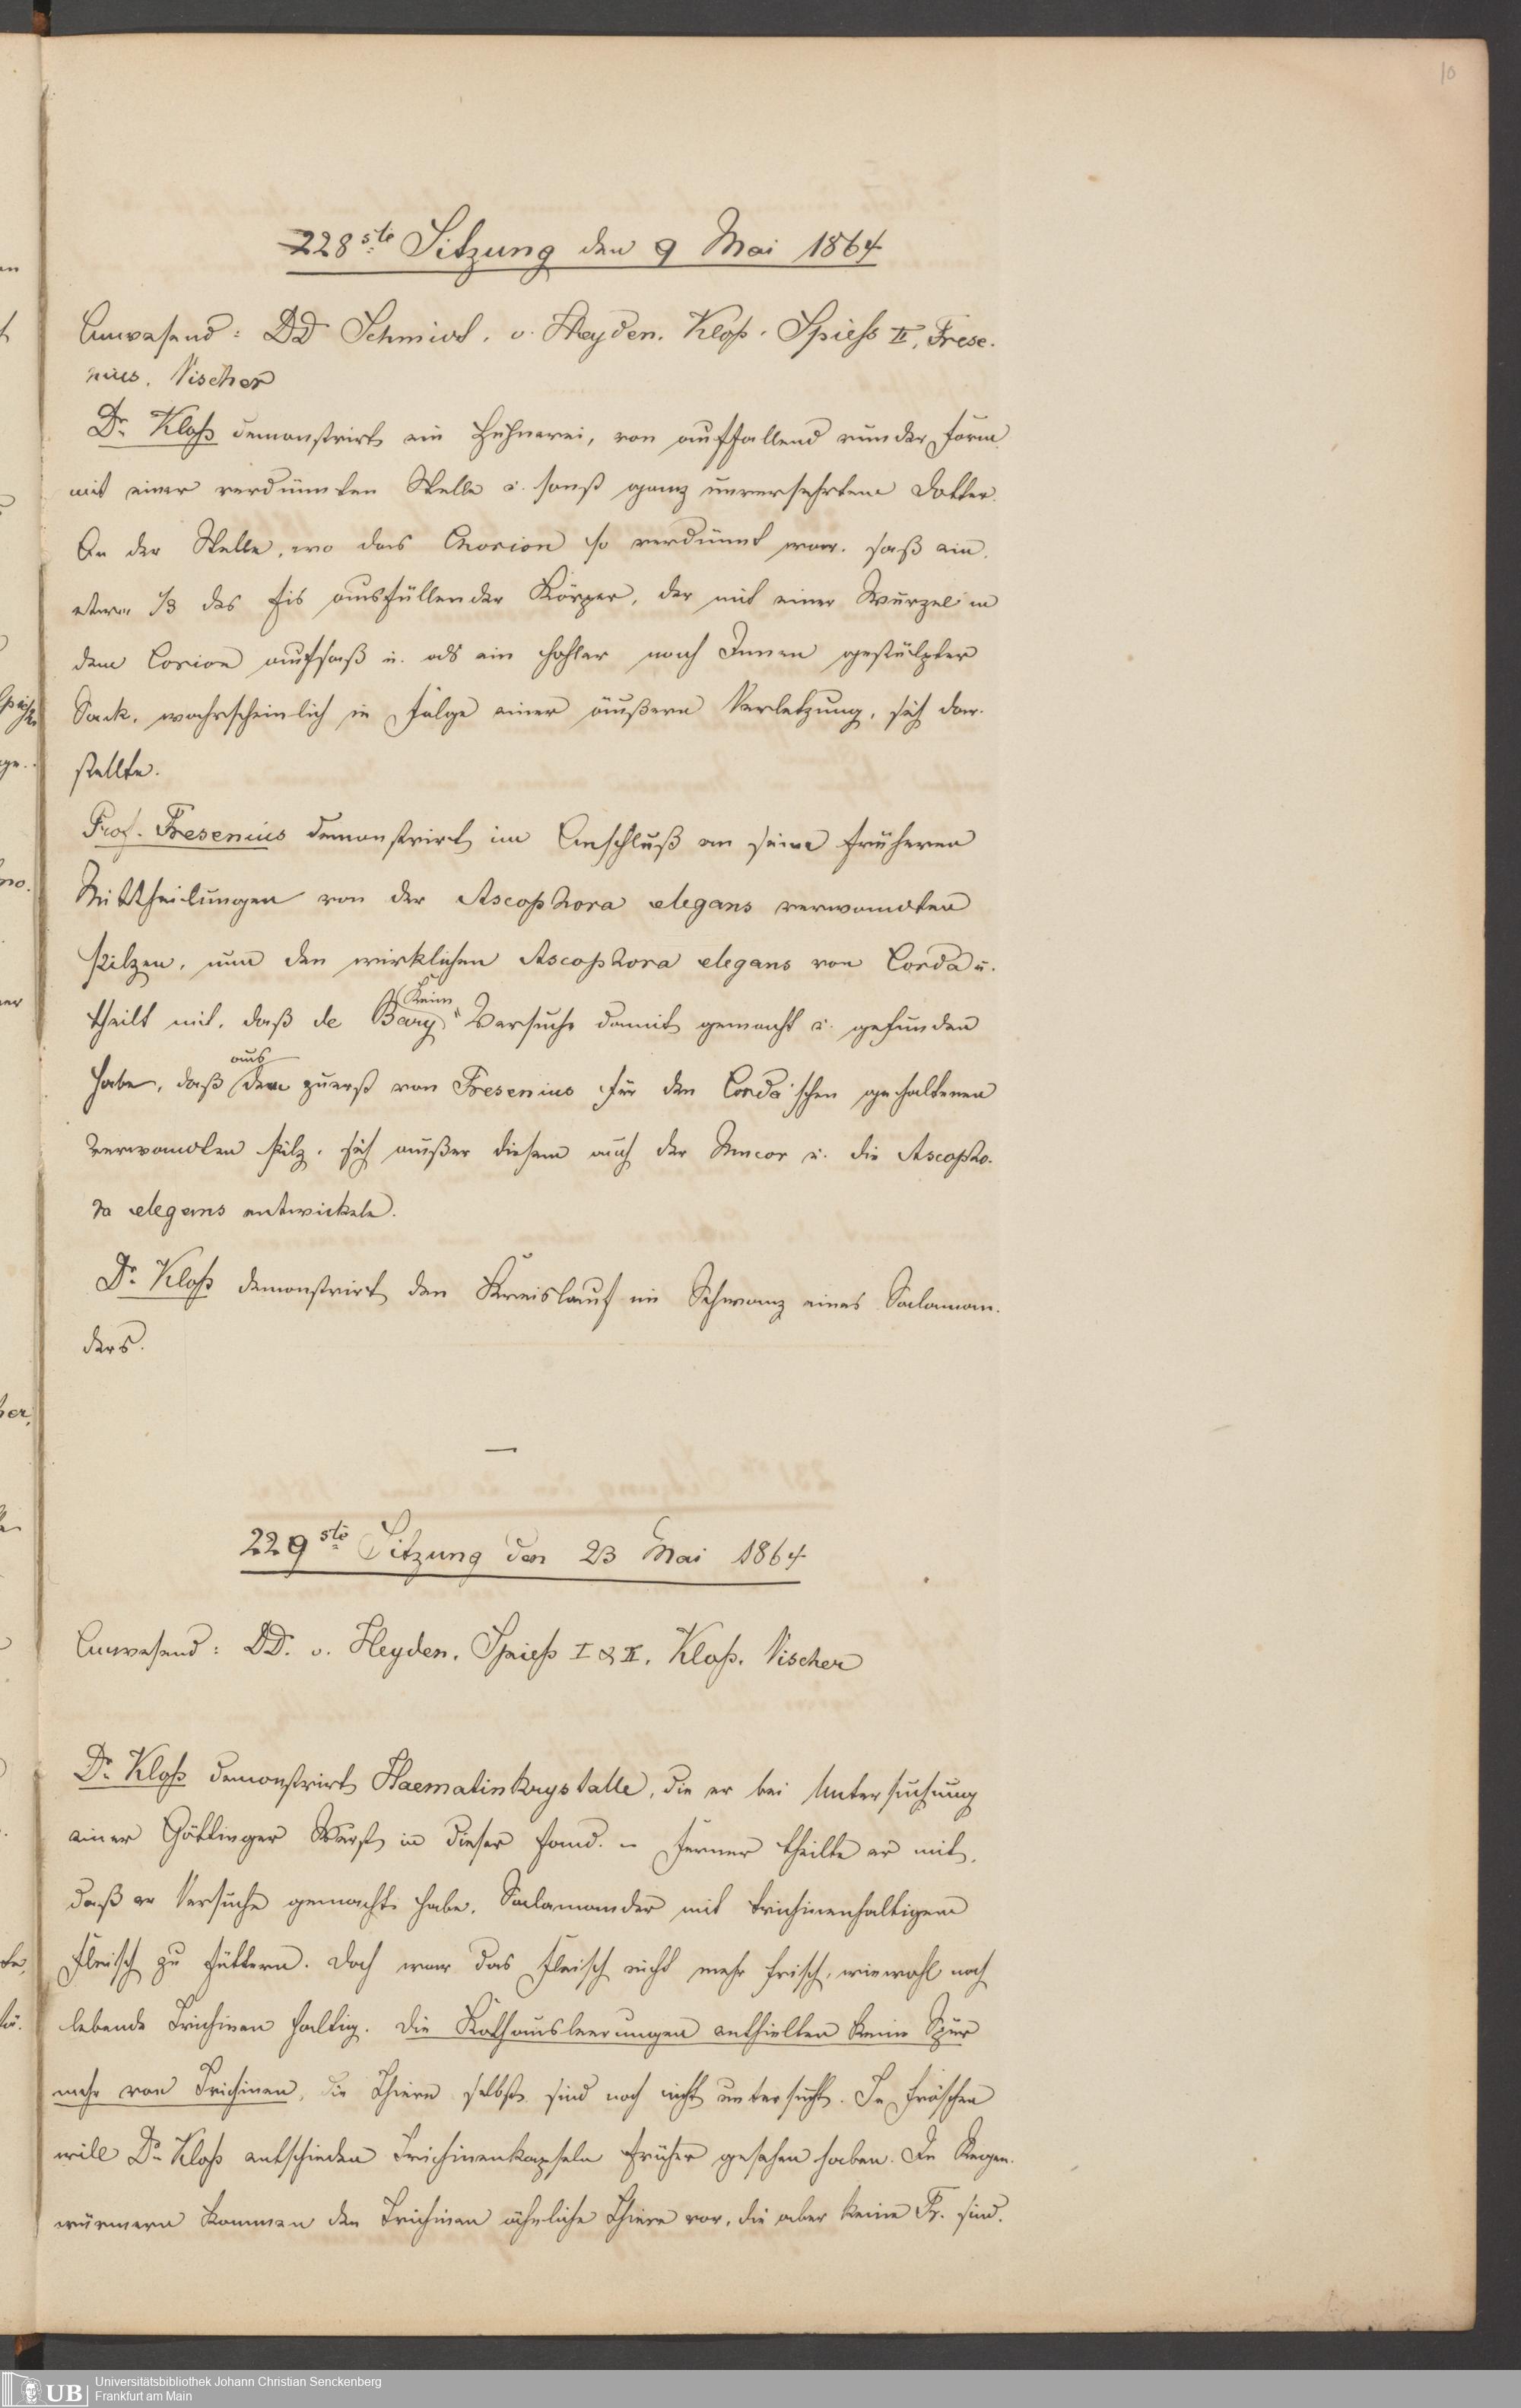 10
228ste Sitzung den 9 Mai 1864
Anwesend: DD Schmidt. v. Heyden. Kloß. Spiess II, Frese-
nius. Vischer
Dr. Kloß demonstrirt ein Hühnerei, von auffallend runder Form
mit einer verdünnten Stelle u. sonst ganz unversehrtem Dotter.
An der Stelle, wo das Chorion so verdünnt war, saß ein,
etwa 1/3 des Eis ausfüllender Körper, der mit einer Wurzel in
dem Corion aufsaß u. als ein hohler nach Innen gestülpter
Sack, wahrscheinlich in Folge einer äußern Verletzung, sich dar-
stellte.
Prof. Fresenius demonstrirt im Anschluß an seine früheren
Mittheilungen von der Ascophora elegans verwandten
Pilzen, nun den wirklichen Ascophora elegans von Corda u.
theilt mit, daß de Bary Keim-Versuche damit gemacht u. gefunden
habe, daß aus dem zuerst von Fresenius für den Corda'schen gehaltenen
verwandten Pilz, sich außer diesem auch der Mucor u. die Ascopho-
ra elegans entwickele.
Dr. Kloß demonstrirt den Kreislauf im Schwanz eines Salaman-
ders.
—
229ste Sitzung den 23 Mai 1864
Anwesend: DD. v. Heyden. Spieß I & II. Kloß. Vischer
Dr. Kloß demonstrirt Haematinkrystalle, die er bei Untersuchung
einer Göttinger Wurst in dieser fand. – Ferner theilte er mit,
daß er Versuche gemacht habe, Salamander mit trichinenhaltigem
Fleisch zu füttern. Doch war das Fleisch nicht mehr frisch, wiewohl noch
lebende Trichinen haltig. Die Kothausleerungen enthielten keine Spur
mehr von Trichinen, die Thiere selbst sind noch nicht untersucht. In Fröschen
will Dr. Kloß entschieden Trichinenkapseln früher gesehen haben. In Regen-
würmern kommen den Trichinen ähnliche Thiere vor, die aber keine Tr. sind.
UB
Universitätsbibliothek Johann Christian Senckenberg
Frankfurt am Main